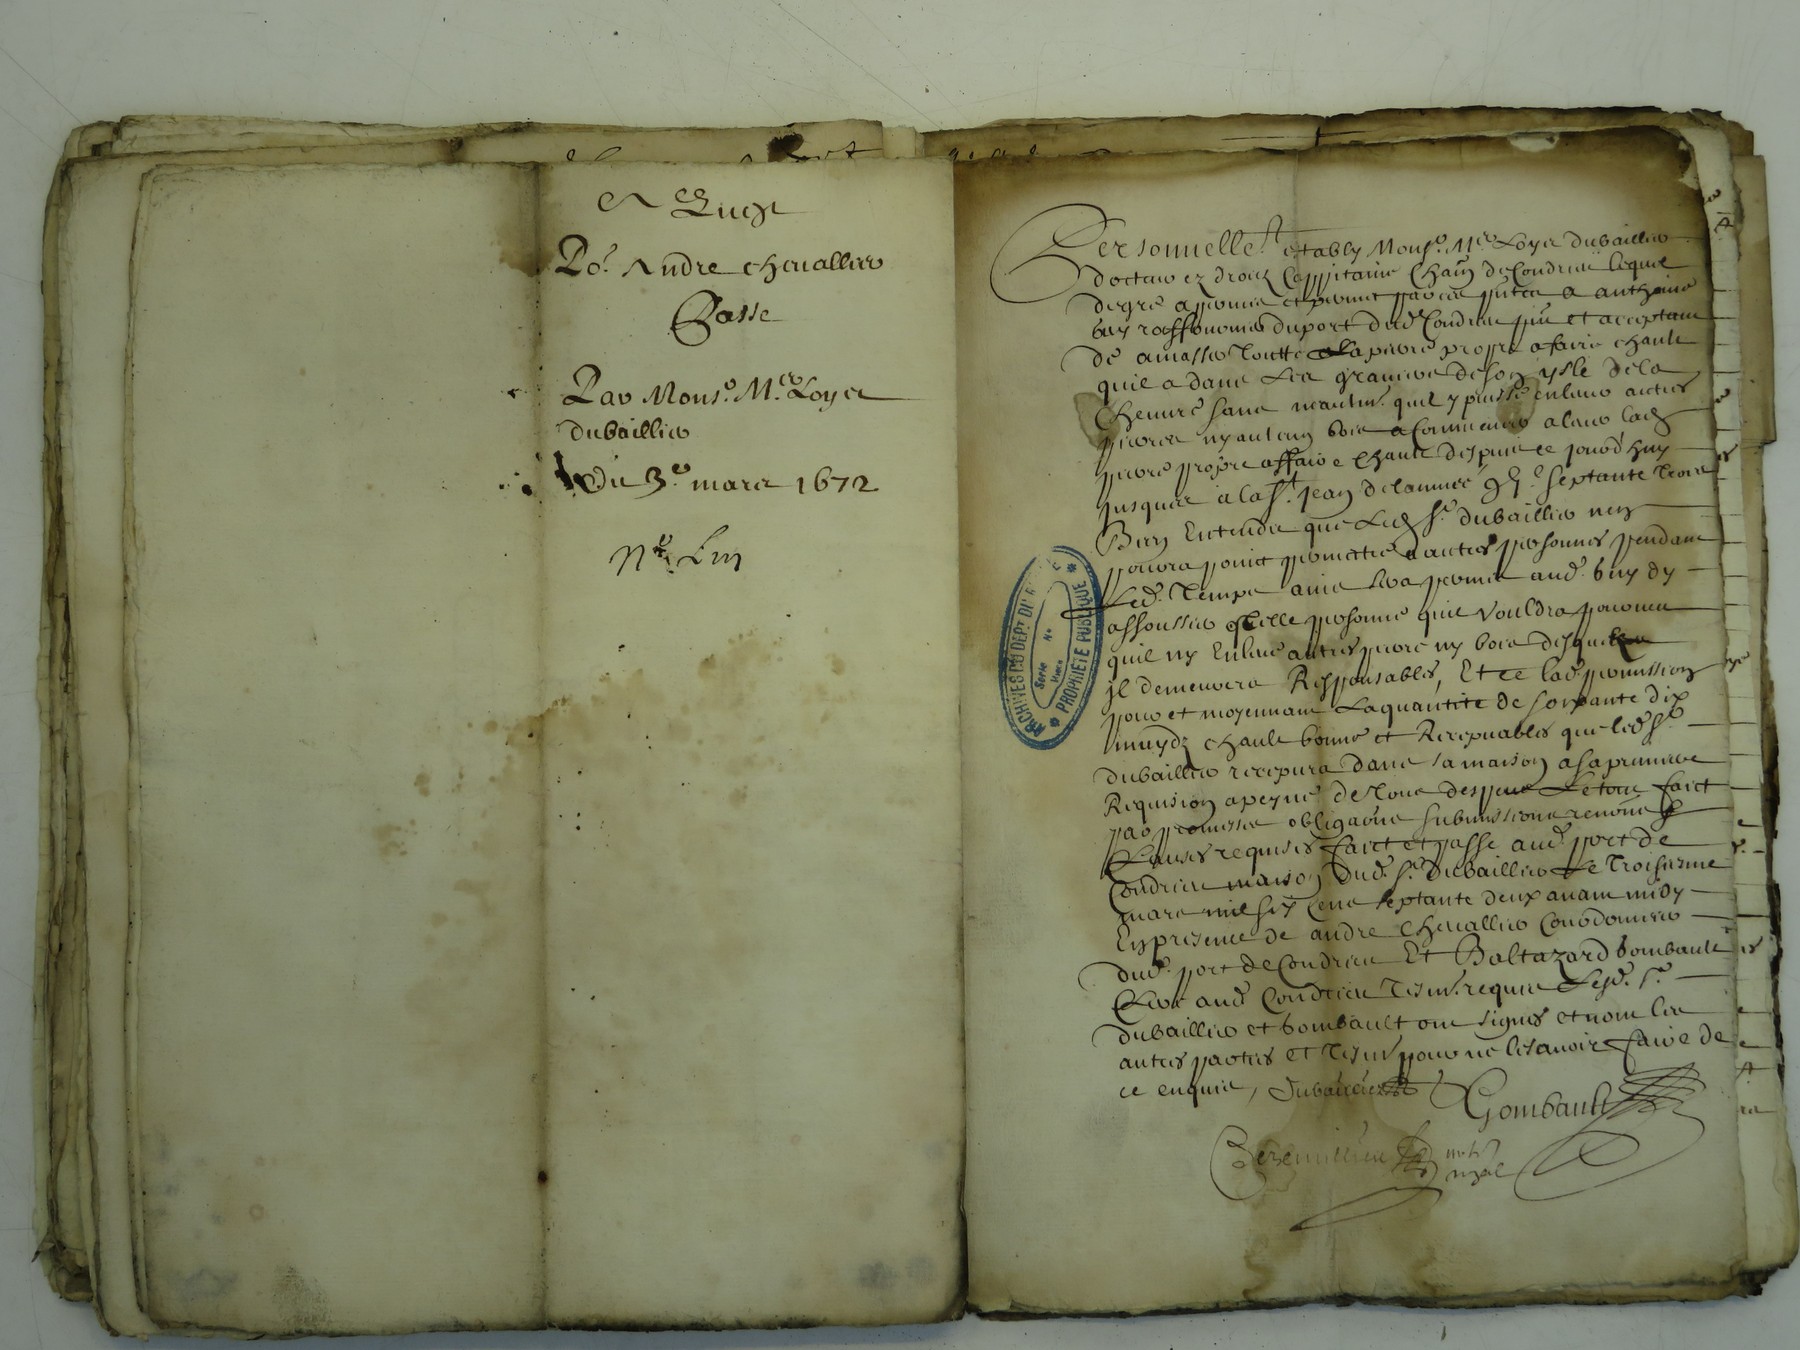 Po.^r Andre chevallier
Passé
Par Mons.^r M.^re Loyer
dubaillier
Du 3.^e mars 1672
N^o Lm
Personnelle^t estably Mons.^r M^re Loyer dubaillier
docteur ez droitz Cappitaine Chan de Condrieu lequel
de gré a promis et promet par ces p^ntes a anthoine
buy du port dud Condrieu p^nt et acceptant
de amasser toutte la pierre propre a faire chault
quil a dans les graviers de son ysle de la
Chevire sans neantm^s quil y puisse enlever autres
pierres ny aucung bois a commencer a lever lad
pierre propre affaire chault despuis ce jourdhuy
jusques a la S^t jean de lannée septante trois
Bien Entendu que Led S^r dubaillier ney
pourra point permettre a autres personnes pendant
Led. temps ains sera permis aud. buy dy
assossier quelle personne quil vouldra pourveu
quil ny Enleve autres pierre ny bois desquelz
jl demeurera Responsables, Et ce lad permission
pour et moyennant La quantité de soixante dix
muydz chault bonne et Recepvables que led S^r
dubaillier recepvra dans sa maison a sa premiere
Requision a peyne de tous despens Le tout faict
par promesse obligaõns submissions renonc
Clauses requises faict et passé aud. port de
Condrieu maison dud. S.^r dubaillier Le Troisiesme
mars mil six cens septante deux avant midy
En presence de andre chevallier Courdonnier
dud. port de Condrieu Et Baltazard bombault
Clerc aud Condrieu tesm. requis Lesd. S.^r
dubaillier et bombault ont signes et non les
autres parties et tesm pour ne le savoir faire de
ce enquis, dubaillier Gombault
not^re
royal
ARCHIVES DU DEPT DU R
PROPRIÉTÉ PUBLIQUE
Serie N^o